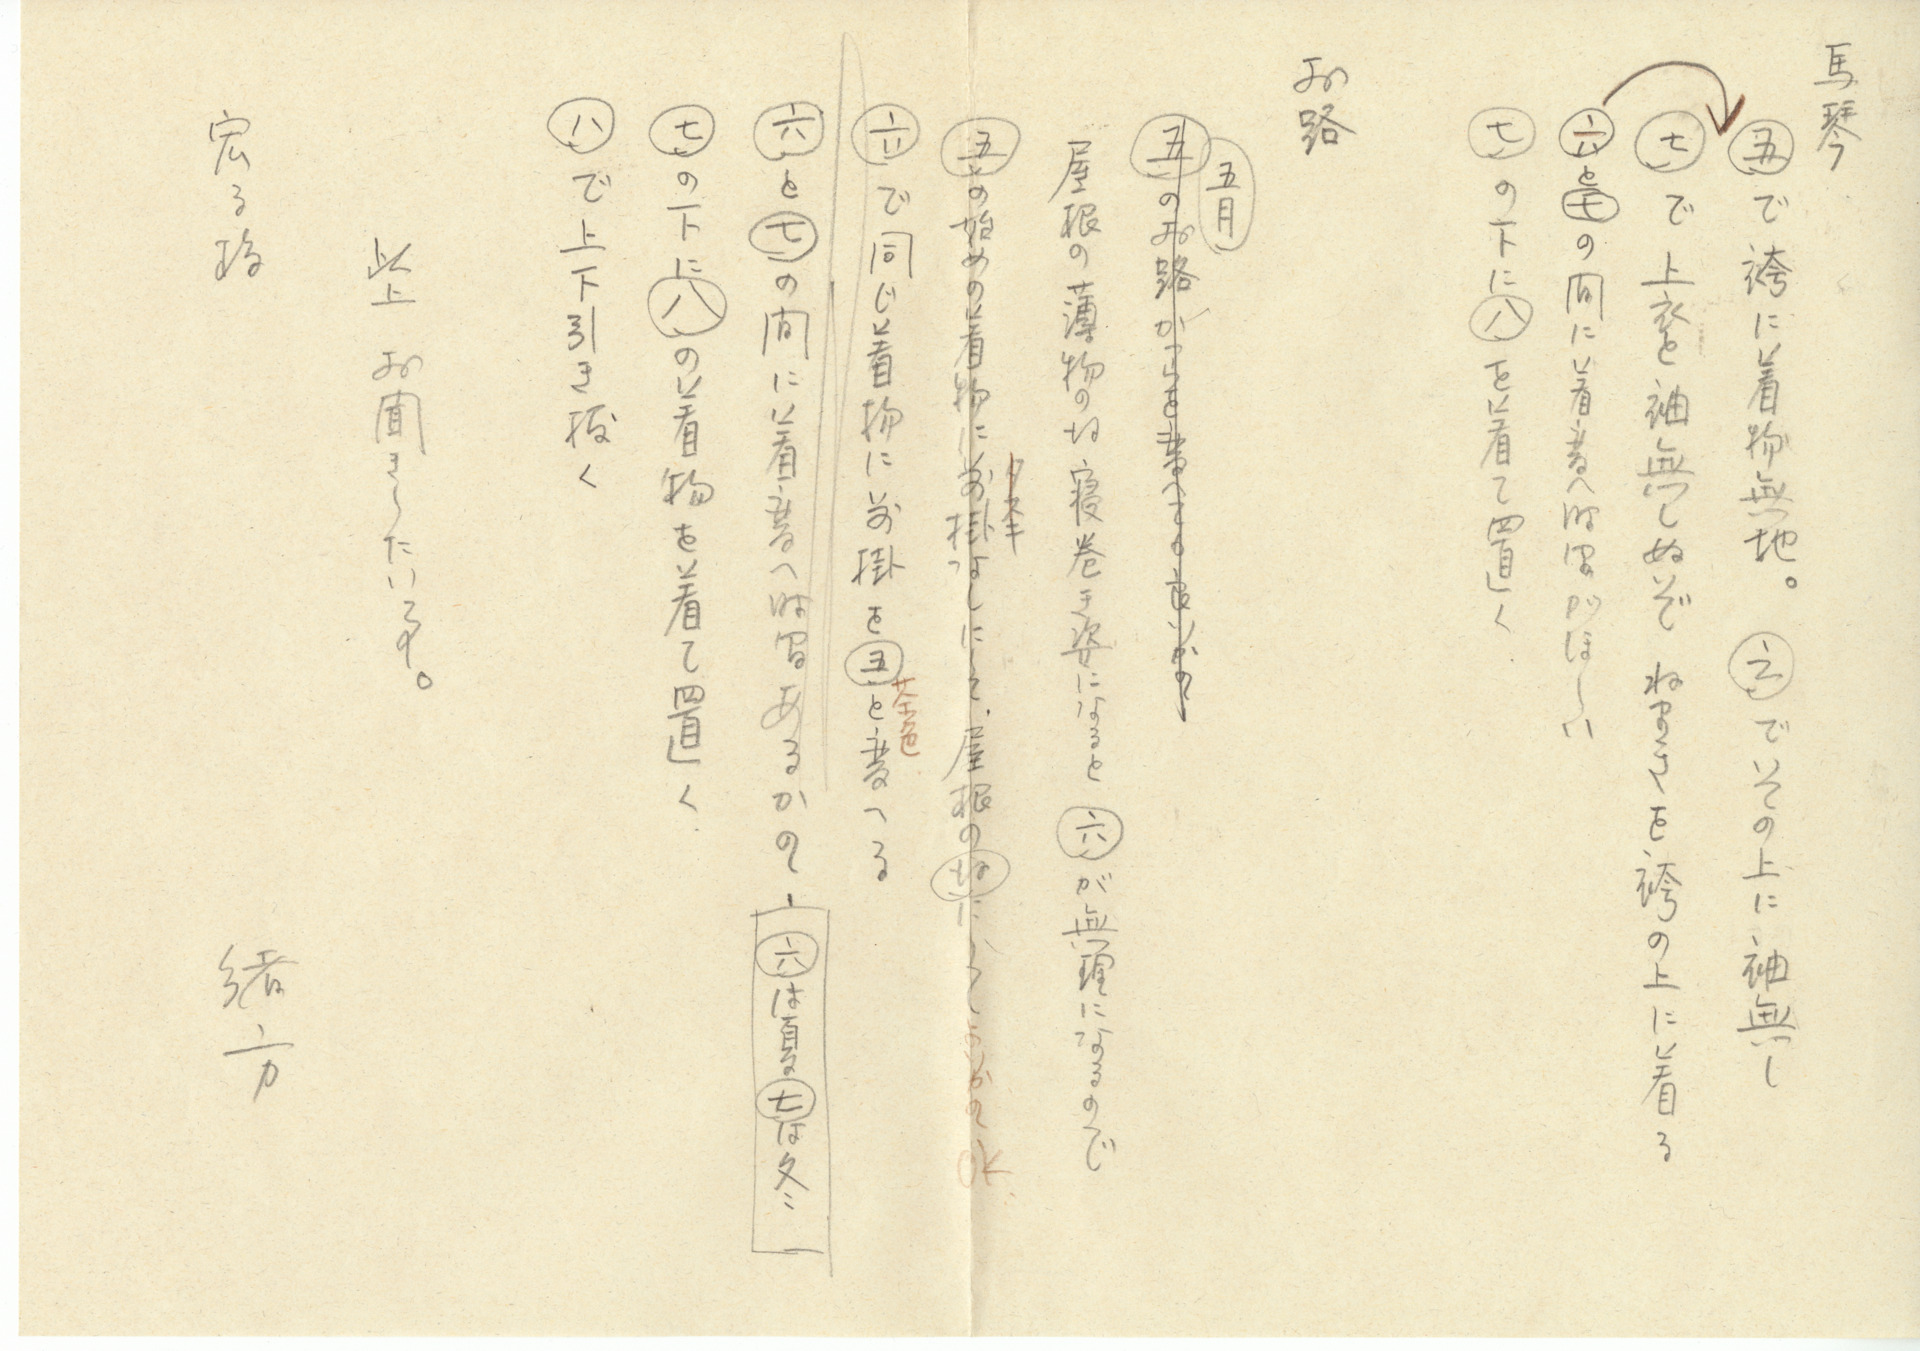 馬琴
五で袴に着物無地。六でその上に袖無し
七で上衣を袖無しぬいで ねまきを袴の上に着る
六と七の間に着替へ時間がほしい
七の下に八を着て置く
お路
五月
五のお路かつらを替へての良いかの
屋根の薄物のね寝巻き姿になると六が無理になるので
タスキ
五の始めの着物に前掛なしにして、屋根のねに
OK
六で同じ着物に前掛を五と替へる
茶色
六と七の間に着替へ時間あるかの
六は夏 七は冬
七の下に八の着物を着て置く
八で上下引き抜く
以上 お聞きしたい事。
緒方